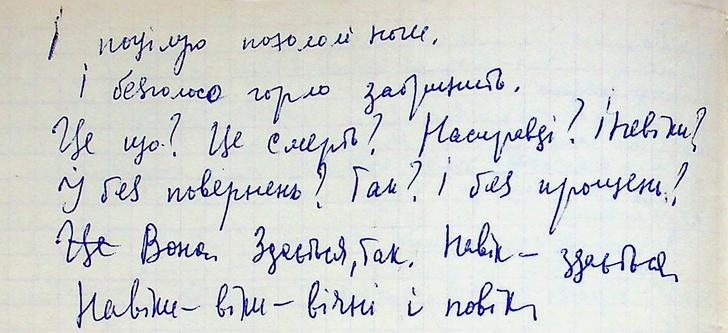 І поцілую похололі ноги,
І безголосо горло забринить.
Це що? Це смерть? Насправді? І навіки?
Й без повернень? Так? І без прощень?
Це Вона. Здається, так. Навік – здається
Навіки – віки – вічні і повік